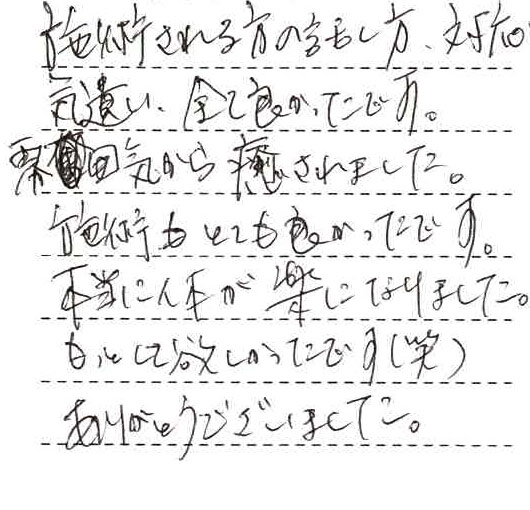 施術される方の話し方、対応
気遣い、全て良かったです。
雰囲気から癒されました。
施術もとても良かったです。
本当に体が楽になりました。
もっとして欲しかったです(笑)
ありがとうございました。